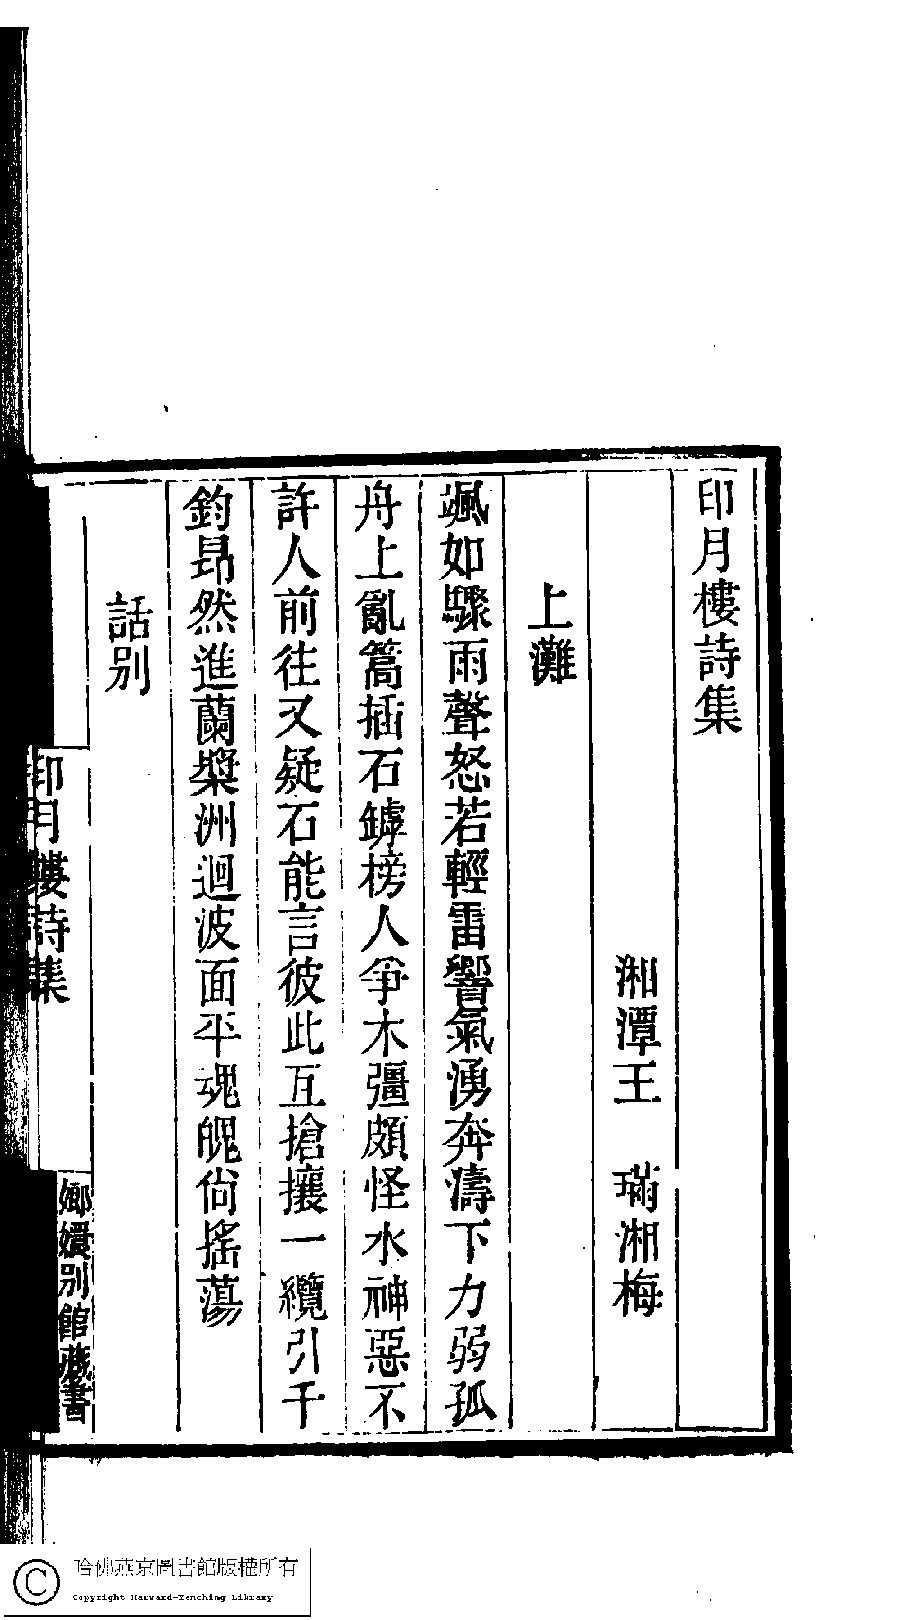 印月樓詩集
湘潭王　璊湘梅
上灘
颯如驟雨聲怒若輕雷響氣湧奔濤下力弱孤
舟上亂篙插石罅榜人爭木彊頗怪水神惡不
許人前往又疑石能言彼此互搶攘一纜引千
鈞昻然進蘭槳洲迴波面平魂魄尙搖蕩
話别
印月樓詩集
嫏嬛别館藏書
哈佛燕京圖書館版權所有
Copyright Harvard-Yenching Library